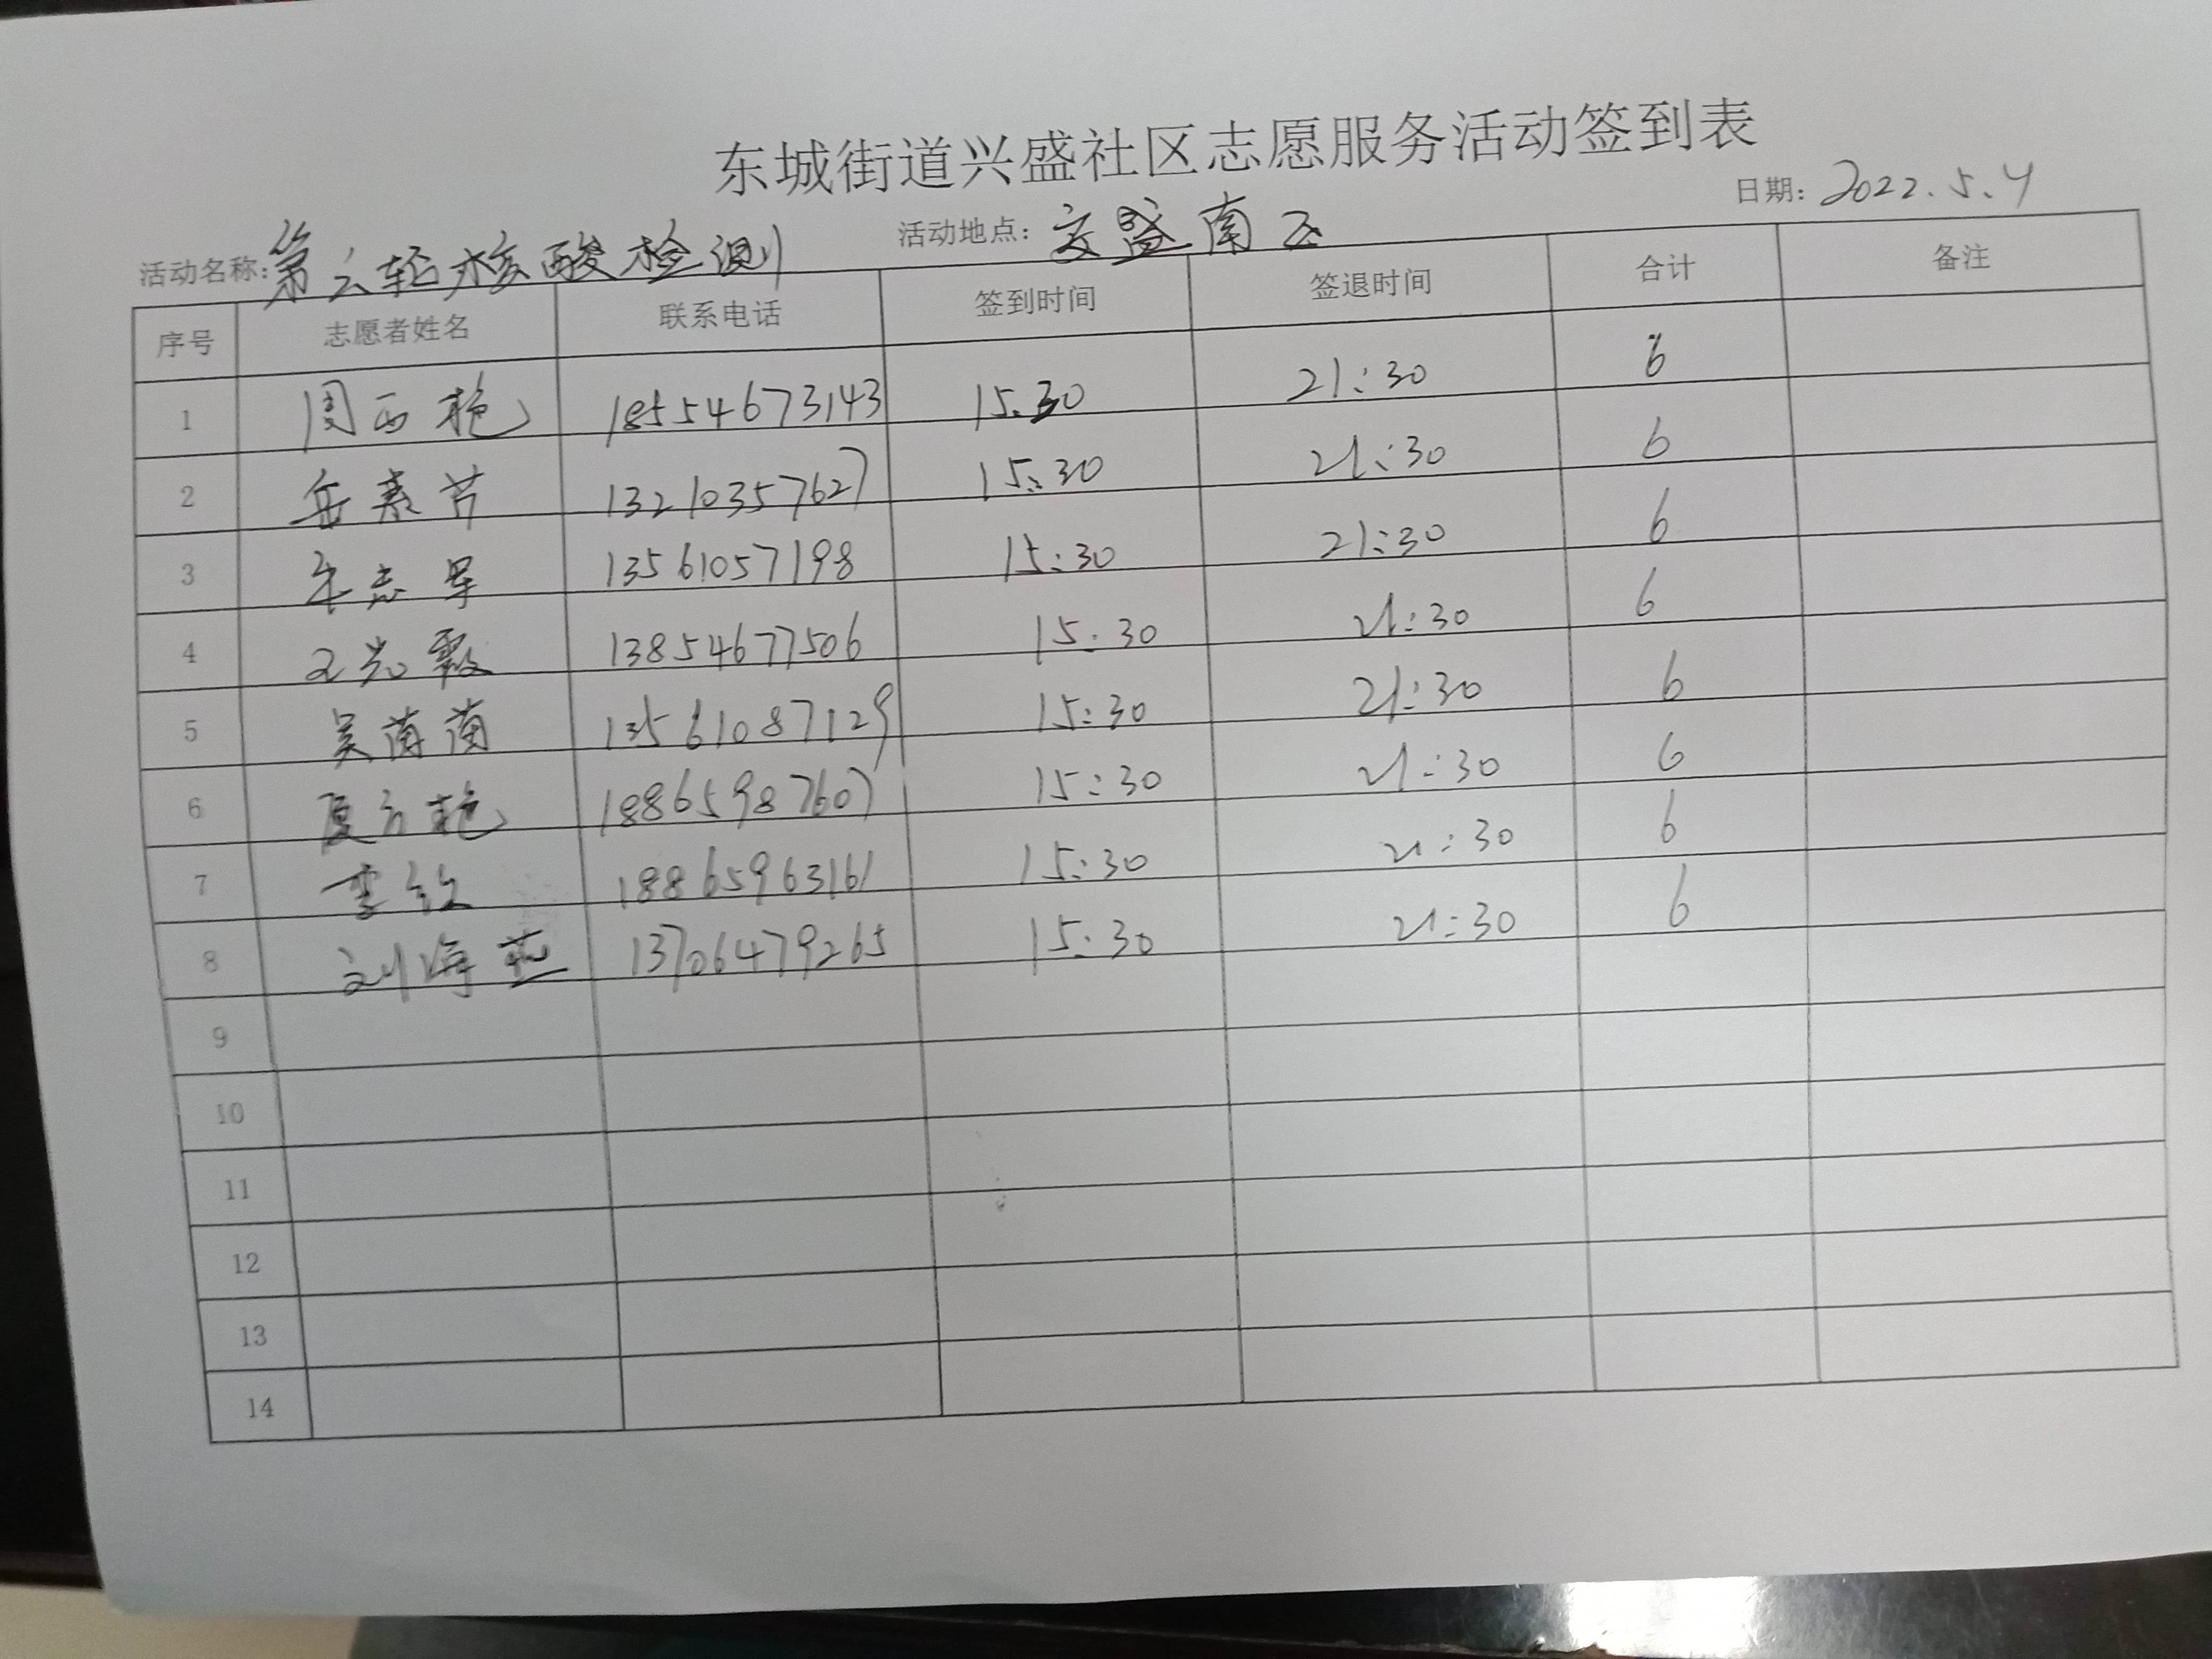 东城街道兴盛社区志愿服务活动签到表
日期: 2022.5.4
活动名称: 第 轮核酸检测 活动地点: 盛南区
序号 志愿者姓名 联系电话 签到时间 签退时间 合计 备注
1 周西艳 18554673143 15:30 21:30 6
2 岳素芹 13210357627 15:30 21:30 6
3 志军 13561057198 15:30 21:30 6
4 王光霞 13854677506 15:30 21:30 6
5 吴茵茵 13561087129 15:30 21:30 6
6 夏方艳 18865987607 15:30 21:30 6
7 李 18865963161 15:30 21:30 6
8 刘海燕 13706479265 15:30 21:30 6
9
10
11
12
13
14